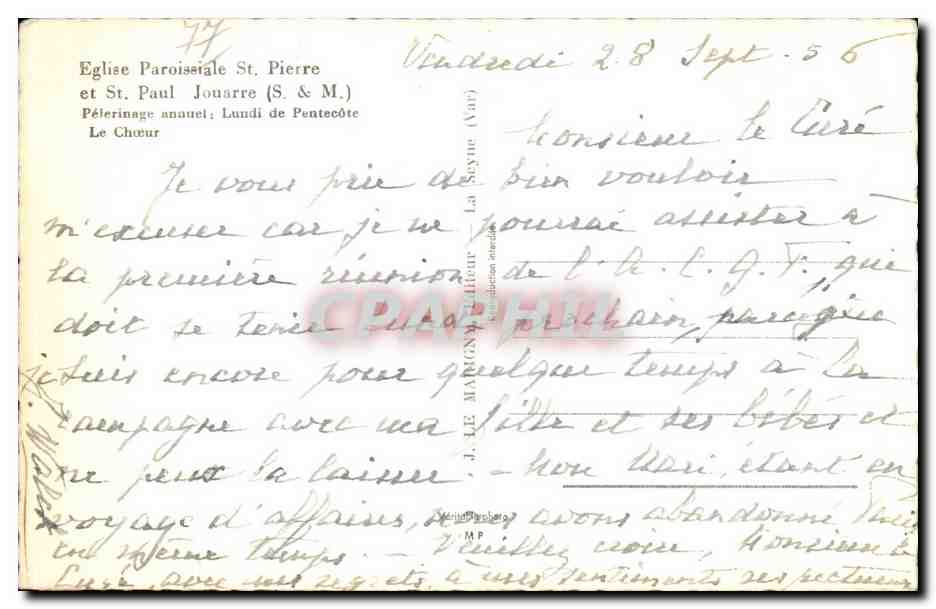 77
Eglise Paroissiale St. Pierre
et St. Paul Jouarre (S. & M.)
Pélerinage annuel: Lundi de Pentecôte
Le Chœur
Vendredi 28 Sept. 56
Monsieur le Curé
Je vous prie de bien vouloir
m'excuser car je ne pourrai assister à
la première réunion de l'A.C.G.F. qui
doit se tenir lundi prochain, parce que
je suis encore pour quelque temps à la
campagne avec ma fille et ses bébés et
ne peux la laisser. - Mon Mari, étant en
voyage d'affaires, nous avons abandonné Paris
en même temps. - Veuillez croire, Monsieur le
Curé, avec mes regrets, à mes sentiments respectueux
J. LE MARIGNY, Editeur - La Seyne (Var)
Reproduction interdite
Véritable photo
MP
CPARHU